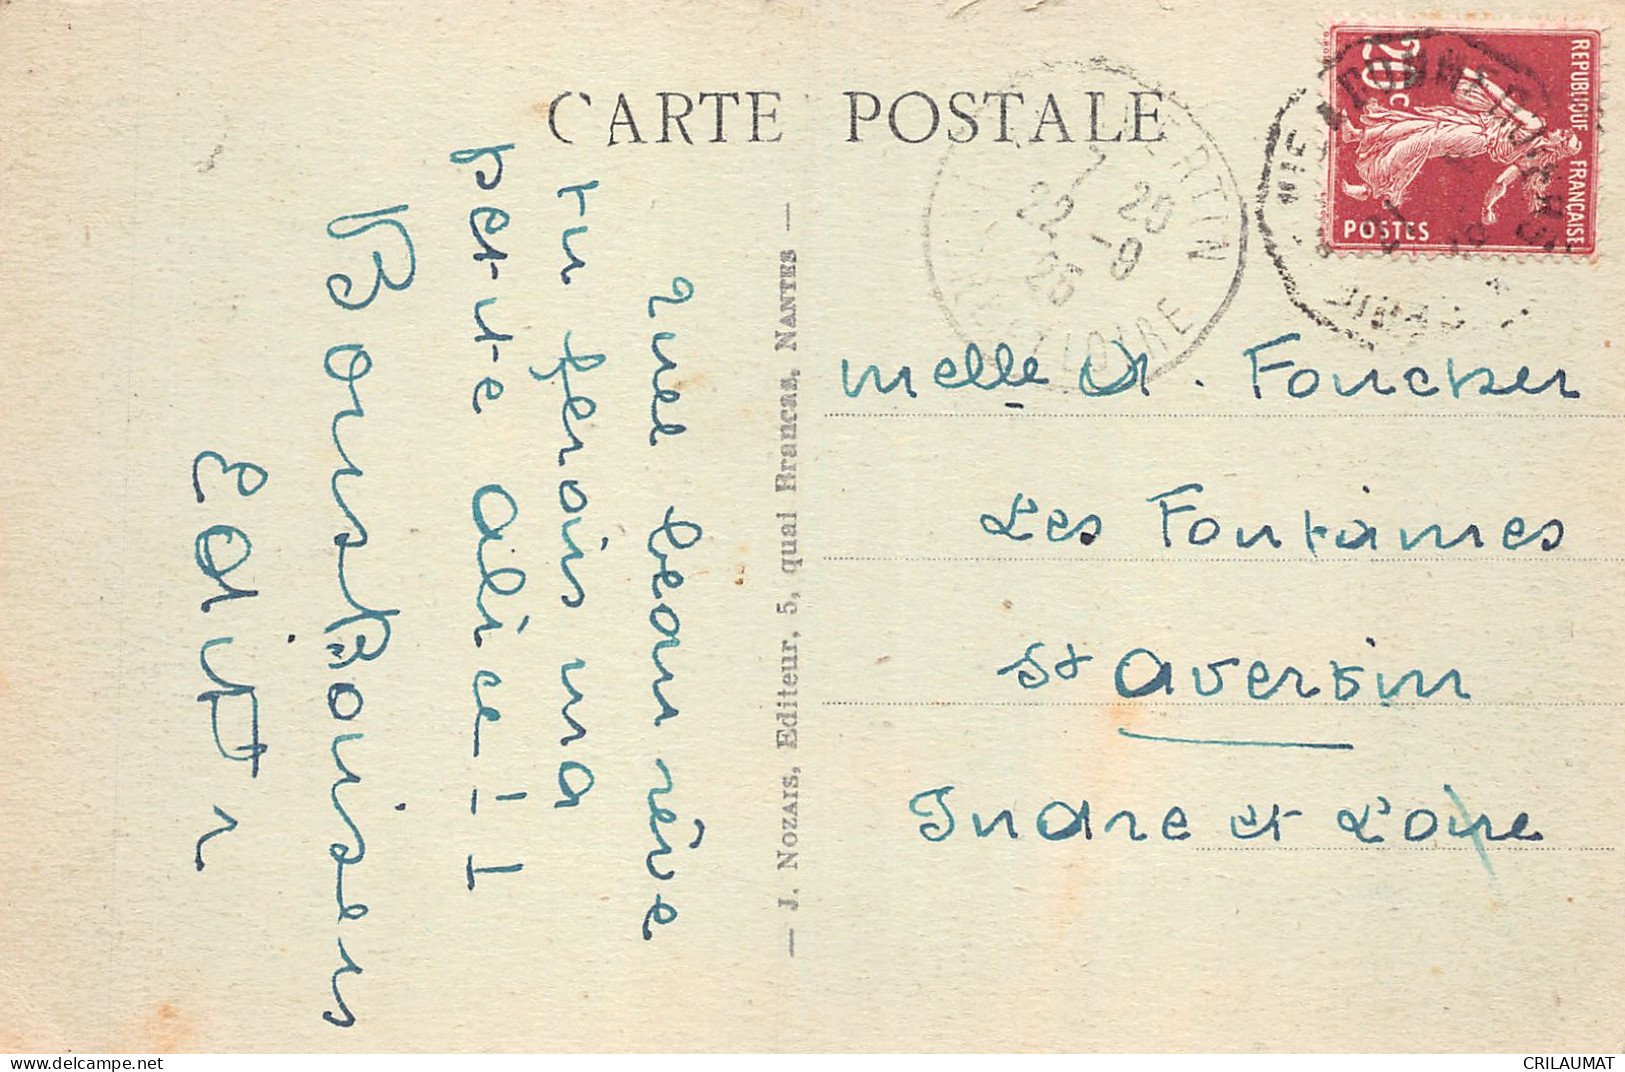 CARTE POSTALE
REPUBLIQUE FRANCAISE
20c
POSTES
7 20
22 -9
26
INDRE ET LOIRE
quel beau rêve
tu ferois ma
petite alice !!
Bons Baisers
— J. Nozais, Editeur, 5, quai Brancas, Nantes —
melle A. Foucher
Les Fontaines
St avertin
Indre et Loire
delcampe.net
CRILAUMAT